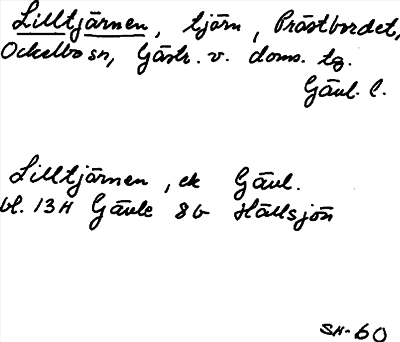 Lilltjärnen, tjärn, Prästbordet,
Ockelbo sn, Gästr. v. doms. tg.
Gävl. l.
Lilltjärnen, ek Gävl.
bl. 13H Gävle 8b Hällsjön
SH-60